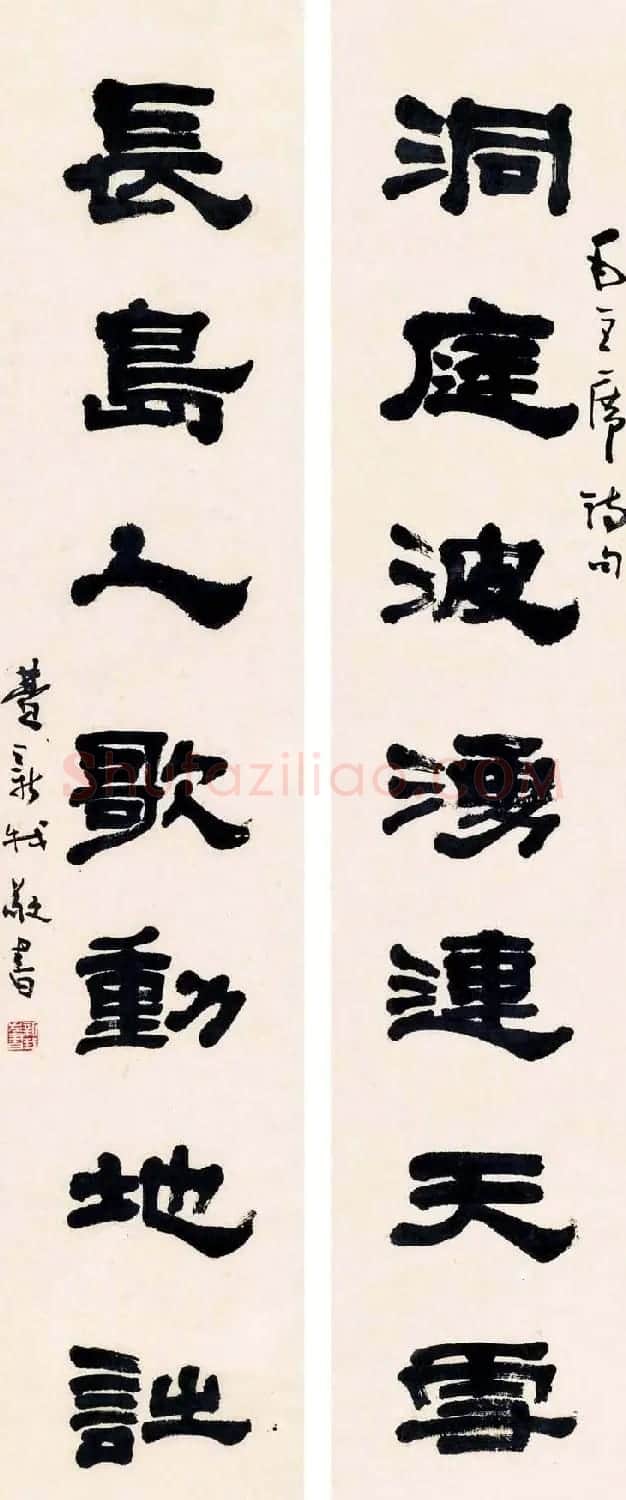 毛主席詩句
洞庭波湧連天雪
長島人歌動地詩
新我敬書
Shufaziliao.COM